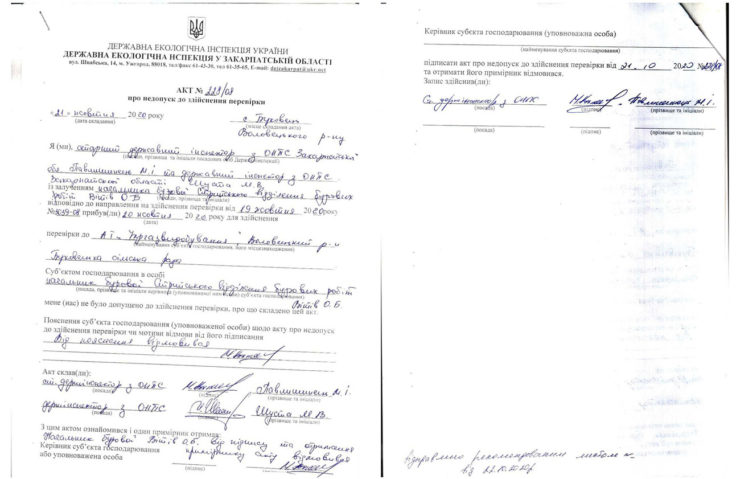 ДЕРЖАВНА ЕКОЛОГІЧНА ІНСПЕКЦІЯ УКРАЇНИ
ДЕРЖАВНА ЕКОЛОГІЧНА ІНСПЕКЦІЯ У ЗАКАРПАТСЬКІЙ ОБЛАСТІ
вул. Швабська, 14, м. Ужгород, 88018, тел/факс 61-43-39, тел 61-35-65, E-mail: deizakarpat@ukr.net
АКТ № 229/08
про недопуск до здійснення перевірки
«21» жовтня 2020 року
(дата складання)
(місце складання акта)
Воловецького р-ну
Я (ми), старший державний інспектор з ОНПС Закарпатської
обл. Павлишинець М.І. та державний інспектор з ОНПС
Закарпатської області Шуста М.В.
Із залученням начальника бурової Стрийського відділення бурових
робіт Витів О.Б.
відповідно до направлення на здійснення перевірки від 19 жовтня 2020 року
прибув(ли) 20 жовтня 2020 року для здійснення
(дата)
перевірки до АТ "Укргазвидобування", Воловецький р-н
(найменування суб'єкта господарювання, його місцезнаходження)
сільська рада
Суб'єктом господарювання в особі
начальник бурової Стрийського відділення бурових робіт
Витів О.Б.
мене (нас) не було допущено до здійснення перевірки, про що складено цей акт.
Пояснення суб'єкта господарювання (уповноваженої особи) щодо акту про недопуск
до здійснення перевірки чи мотиви відмови від його підписання
Від пояснення відмовився
Акт склав(ли):
ст. держінспектор з ОНПС Павлишинець М.І.
(посада) (підпис) (прізвище та ініціали)
держінспектор з ОНПС Шуста М.В.
(посада) (підпис) (прізвище та ініціали)
З цим актом ознайомився і один примірник отримав:
Начальник бурової Витів О.Б. від підпису та отримання
Керівник суб'єкта господарювання примірнику акту відмовився
або уповноважена особа
(підпис)
Керівник суб'єкта господарювання (уповноважена особа)
(найменування суб'єкта господарювання)
підписати акт про недопуск до здійснення перевірки від 21.10 2020 №229/08
та отримати його примірник відмовився.
Запис здійснив(ли):
Ст. держінспектор з ОНПС Павлишинець М.І.
(посада) (підпис) (прізвище та ініціали)
(посада) (підпис) (прізвище та ініціали)
Відправлено рекомендованим листом